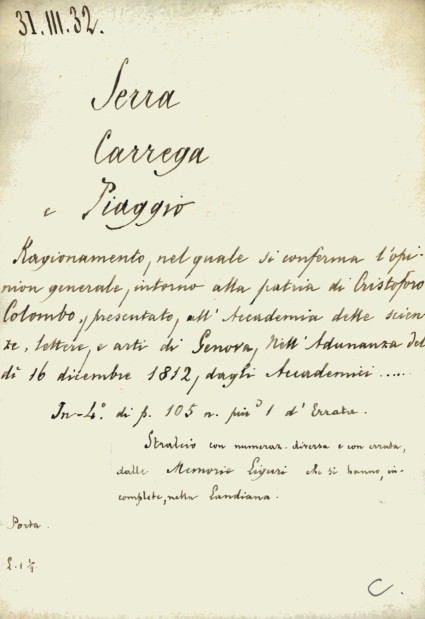 31.III.32.
Serra
Carrega
e Piaggio
Ragionamento, nel quale si conferma l'opi-
nion generale, intorno alla patria di Cristoforo
Colombo, presentato, all'Accademia delle scien-
ze, lettere, e arti di Genova, Nell'Adunanza del
dì 16 dicembre 1812, dagli Accademici .....
In-4º. di p. 105 n. più 1 d'Errata.
Stralcio con numeraz. diversa e con errata,
dalle Memorie Liguri che si hanno, in-
complete, nella Landiana.
Porta
L. 1 ½
C.